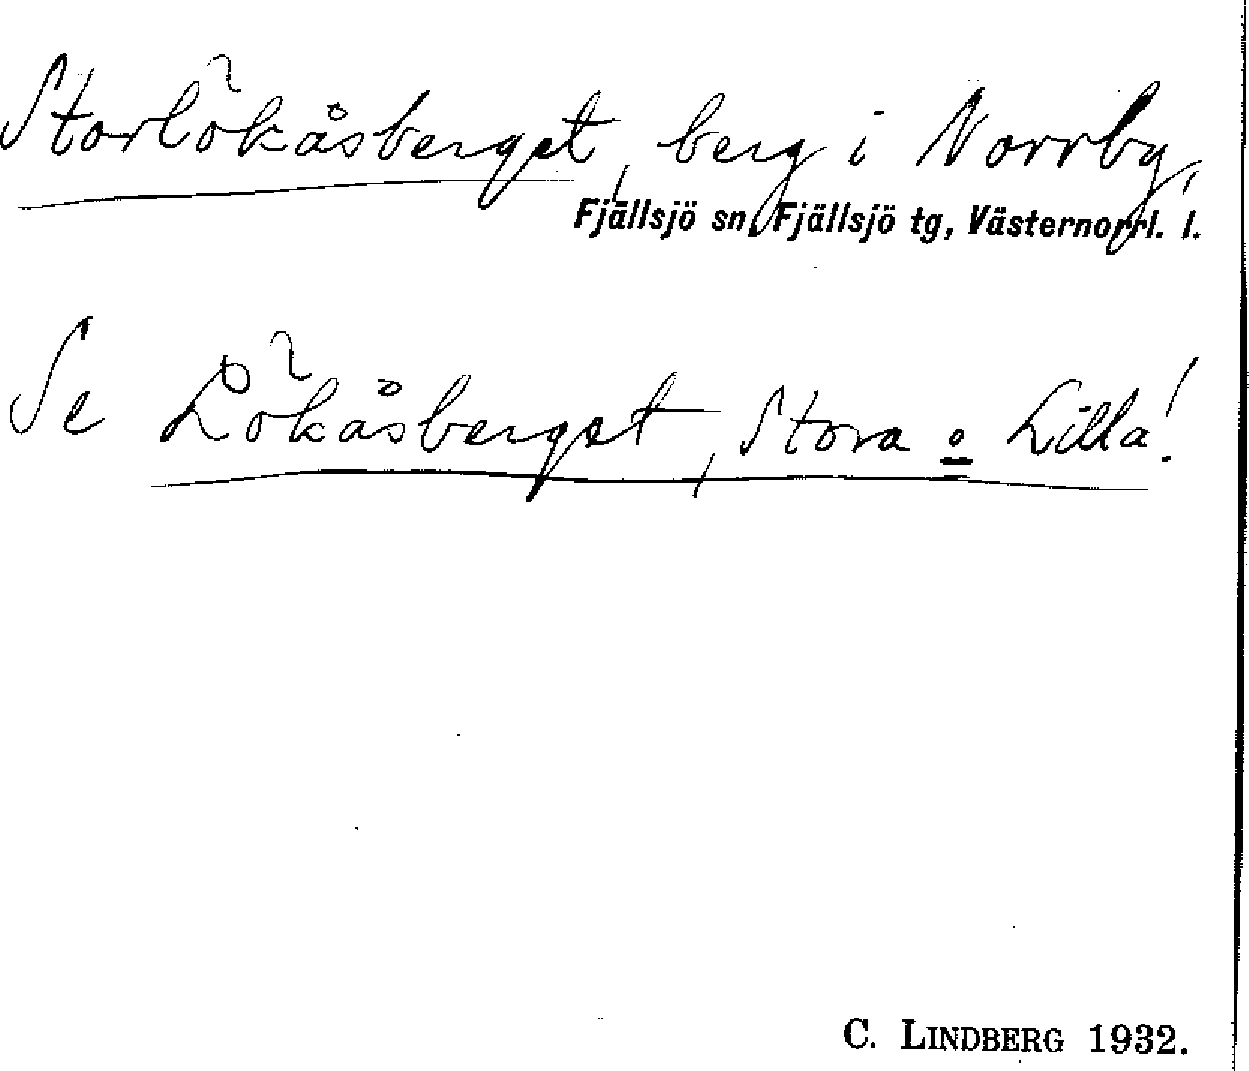 Storlökåsberget, berg i Norrby,
Fjällsjö sn, Fjällsjö tg, Västernorrl. l.
Se Lökåsberget, Stora o Lilla!
C. LINDBERG 1932.